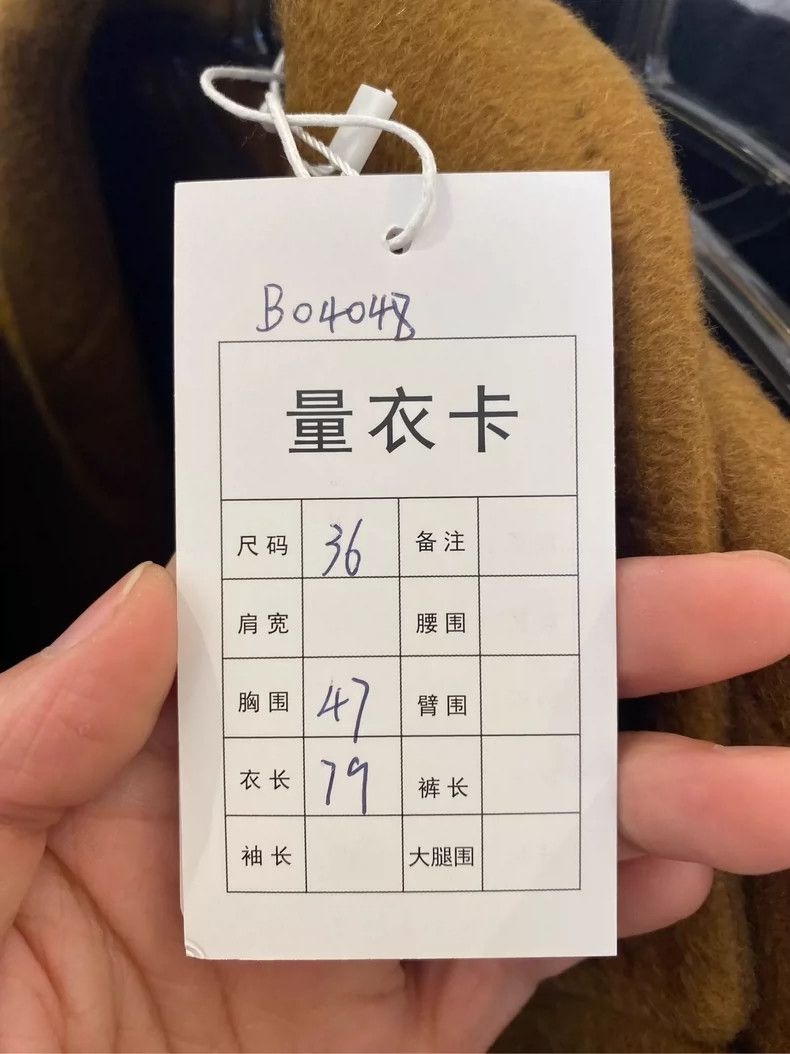 B04048
量衣卡
尺码 36 备注
肩宽 腰围
胸围 47 臂围
衣长 79 裤长
袖长 大腿围